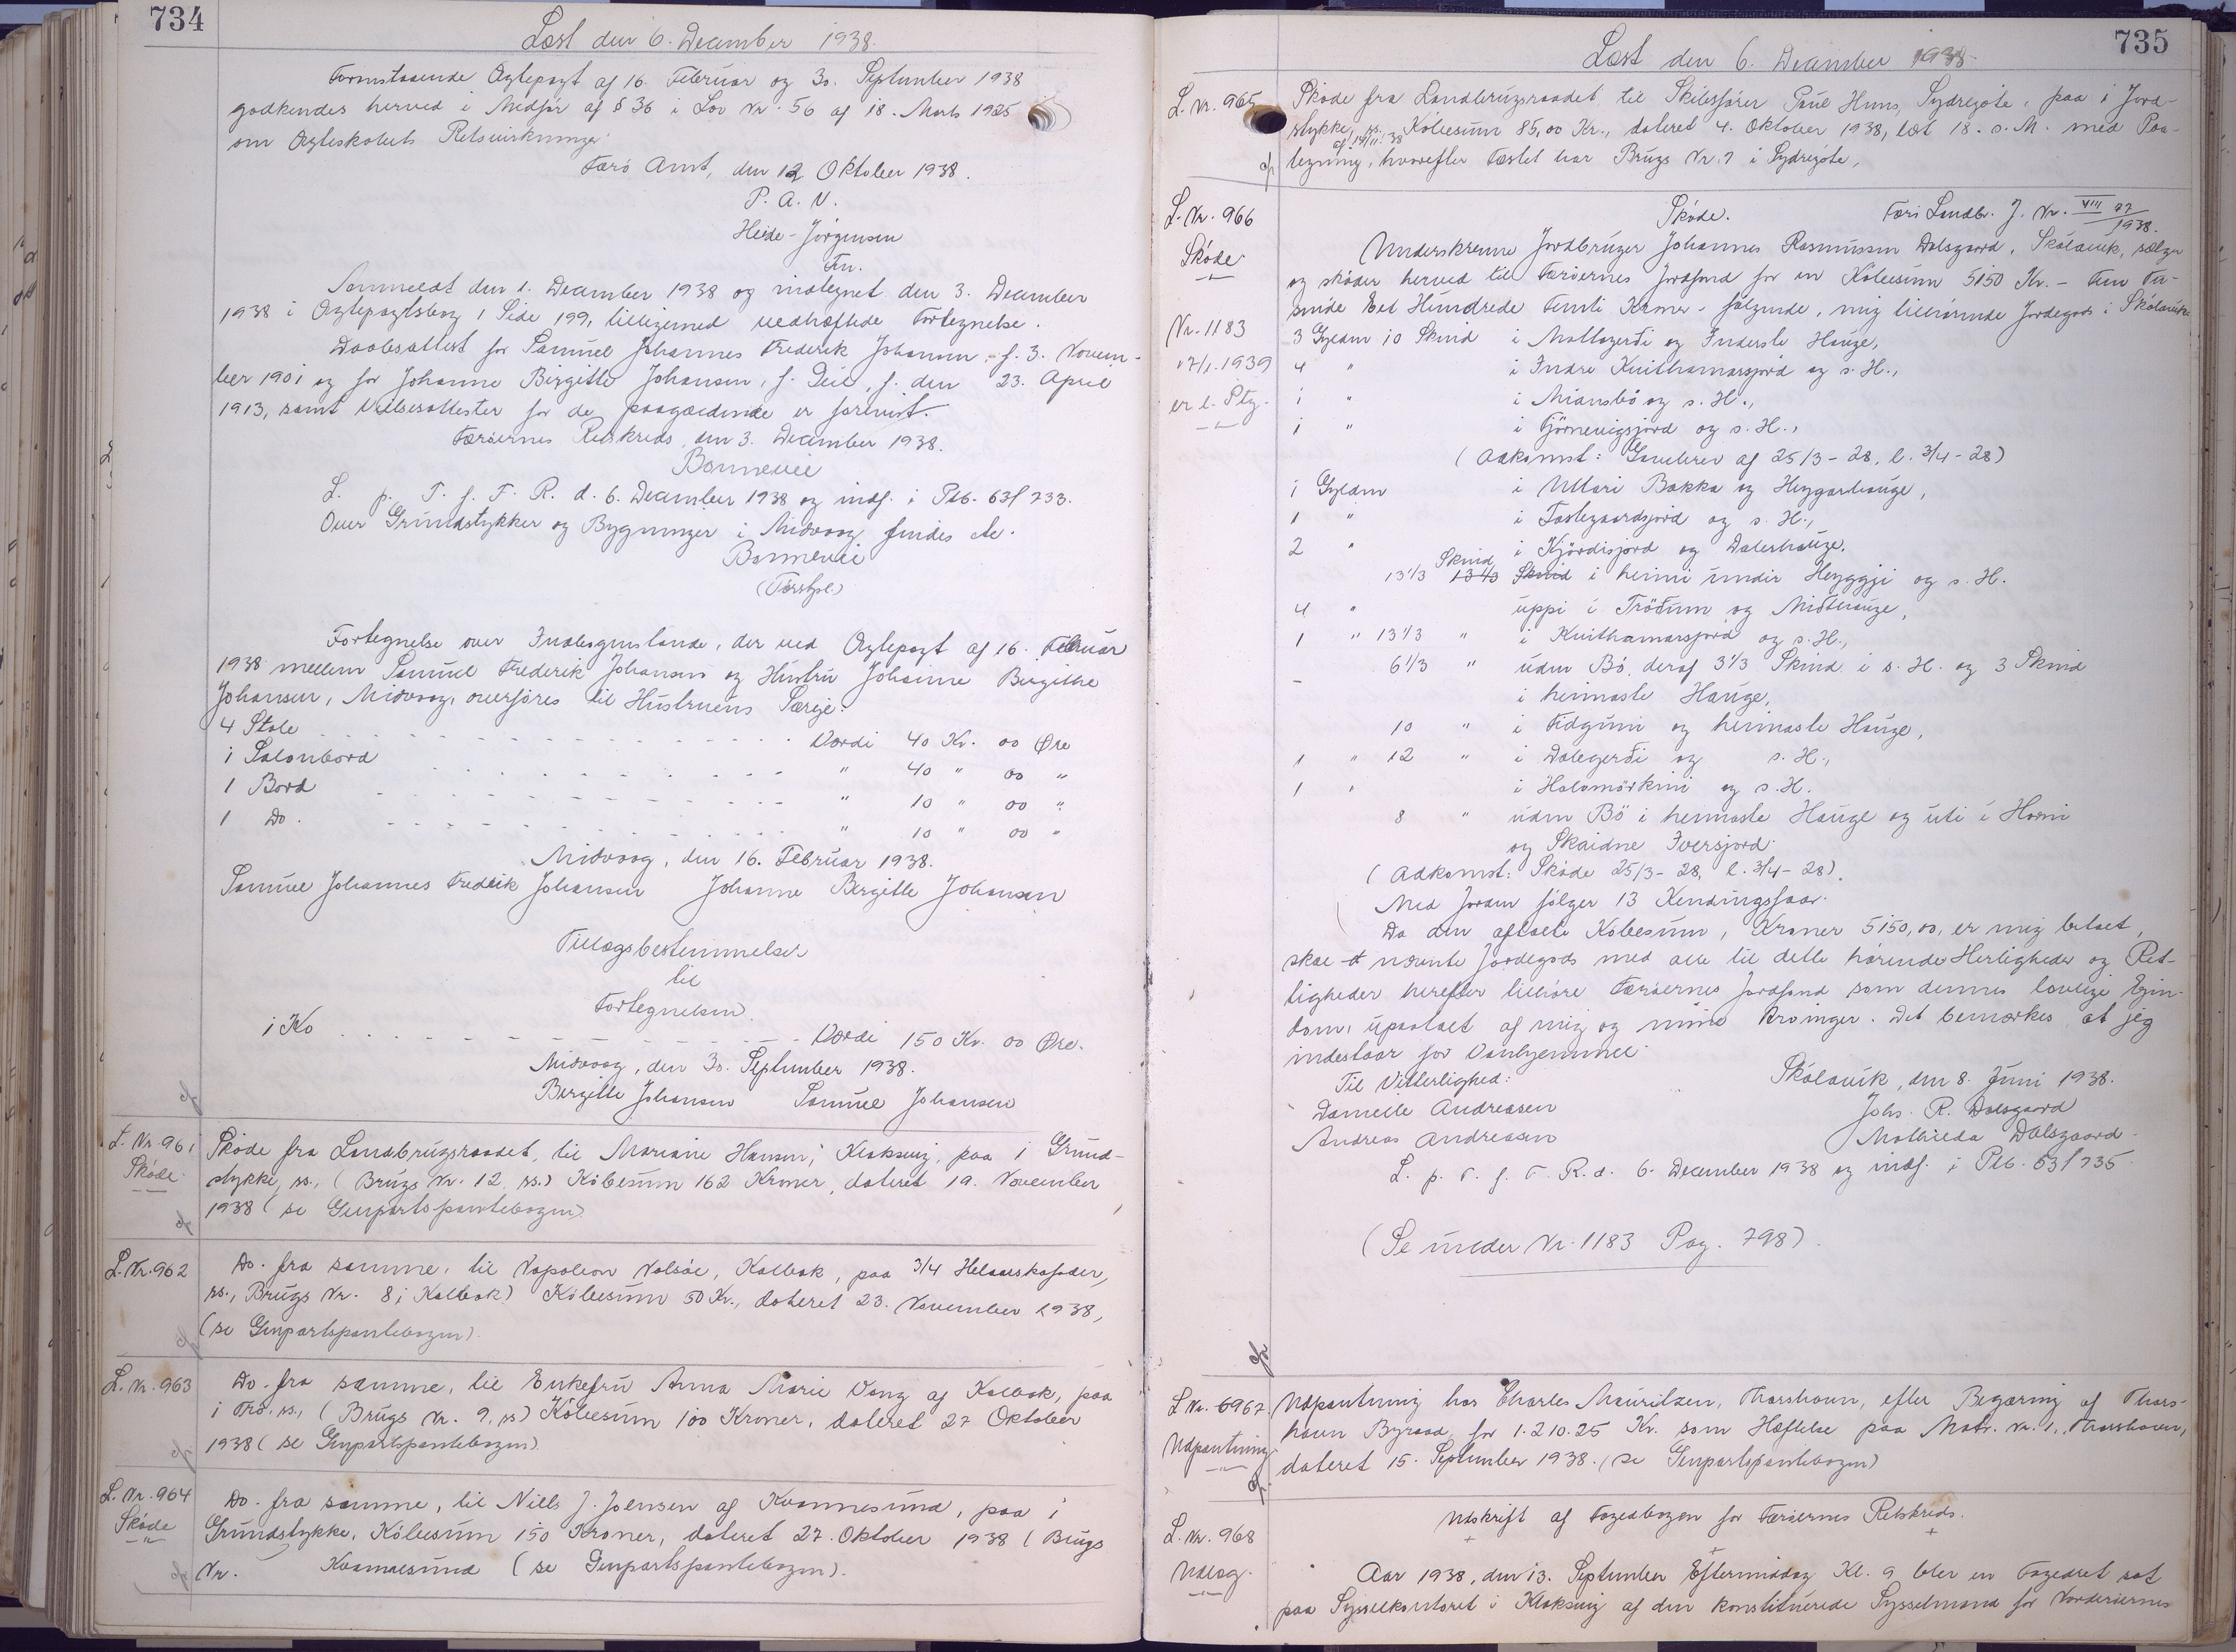 734
Læst den 6. December 1938.
Formstaaende Ægtepagt af 16. Februar og 30. September 1938
godkendes herved i Medfør af § 36 i Lov Nr. 56 af 18. Marts 1925
om Ægteskabets Retsvirkninger.
Færø Amt, den 12 Oktober 1938.
P. A. V.
Heide-Jörgensen
Fm.
Anmeldt den 1. December 1938 og indtegnet den 3. December
1938 i Ægtepagtsbog 1 Side 199, tilligemed vedhæftede Fortegnelse.
Daabsattest for Samuel Johannes Frederik Johansen, f. 3. Novem-
ber 1901 og for Johanne Birgitte Johansen, f. Deil, f. den 23. April
1913, samt Vielsesattester for de paagældende er forevist.
Færøernes Retskreds, den 3. December 1938.
Bonnevie
L. p. T. f. F. R. d. 6. December 1938 og indf. i Ptb. 63f 733.
Over Grundstykker og Bygninger i Midvaag findes etc.
Bonnevie
(Færstpl.)
Fortegnelse over Indbogenstande, der ved Ægtepagt af 16. Februar
1938 mellem Samuel Frederik Johansen og Hustru Johanne Birgithe
Johansen, Midvaag, overføres til Hustruens Særeje:
4 Stole Værdi 40 Kr. 00 Øre
1 Salonbord " 40 " 00 "
1 Bord " 10 " 00 "
1 Do. " 10 " 00 "
Midvaag, den 16. Februar 1938.
Samuel Johannes Fredrik Johansen Johanne Bergitte Johansen
Tillægsbestemmelser
til
Fortegnelsen
1 Ko Værdi 150 Kr. 00 Øre.
Midvaag, den 30. September 1938.
Bergitte Johansen Samuel Johansen
L. Nr. 961
Skøde
Skøde fra Landbrugsraadet, til Mariane Hansen, Klaksvig, paa 1 Grund-
stykke, ss., (Brugs Nr. 12, ss.) Købesum 162 Kroner, dateret 19. November
1938 (se Genpartspantebogen)
L. Nr. 962
Do. fra samme, til Napoleon Nolsøe, Kalbak, paa 3/4 Helaarskofoder,
ss., Brugs Nr. 8 i Kalbak) Købesum 50 Kr., dateret 23. November 1938,
(se Genpartspantebogen).
L. Nr. 963
Do. fra samme, til Enkefru Anna Marie Vang af Kalbak, paa
1 Trø, ss., (Brugs Nr. 9, ss) Købesum 100 Kroner, dateret 27 Oktober
1938 (se Genpartspantebogen)
L. Nr. 964
Skøde
Do. fra samme, til Niels J. Joensen af Kvannesund, paa 1
Grundstykke, Købesum 150 Kroner, dateret 27. Oktober 1938 (Brugs
Nr. Kvannesund (se Genpartspantebogen).
735
Læst den 6. December 1938.
L. Nr. 965
Skøde fra Landbrugsraadet til Skibsfører Poul Huns, Sydregøte, paa 1 Jord-
stykke, ss. Købesum 85,00 Kr., dateret 4. Oktober 1938, læst 18. s. M. med Paa-
af 14/11. 38
tegning, hvorefter Fæstet har Brugs Nr. 7 i Sydregøte,
L. Nr. 966
Skøde
Skøde. Færø Landbr. J. Nr. VIII 77/1938.
Underskrevne Jordbruger Johannes Rasmussen Dalsgaard, Skålavik, sælger
og skøder herved til Færøernes Jordfond for en Købesum 5150 Kr. - Fem Tu-
sinde Eet Hundrede Femti Kroner - følgende, mig tilhørende Jordegods i Skålavik:
Nr. 1183
17/1. 1939
er l. Ptg.
3 Gylden 10 Skind i Mattagerði og Inderste Hauge,
4 " i Indre Knithamarsjord og s. H.,
1 " i Miansbø og s. H.,
1 " i Tjörnevigsjord og s. H.,
(Adkomst: Gavebrev af 25/3 - 28, l. 3/4 - 28)
1 Gylden i Uttari Bakka og Heygarhauge,
1 " i Toftegaardsjord og s. H.,
2 " i Kjördisjord og Dalerhauge.
13 1/3 Skind i heimi undir Heyggji og s. H.
4 " uppi i Tröðum og Midterauge,
1 " 13 1/3 " i Knithamarsjord og s. H.,
6 1/3 " uden Bö, deraf 3 1/3 Skind i s. H. og 3 Skind
i heimaste Hauge,
10 " i Fidguni og heimaste Hauge,
1 " 12 " i Dalegerði og s. H.,
1 " i Halamörkini og s. H.
8 " uden Bö i heimaste Hauge og uti i Horni
og Skaidne Iversjord.
(Adkomst: Skøde 25/3 - 28, l. 3/4 - 28).
Med Jorden følger 13 Kendingsfaar.
Da den aftalte Købesum, Kroner 5150,00, er mig betalt,
skal nævnte Jordegods med alle til dette hørende Herligheder og Ret-
tigheder herefter tilhøre Færøernes Jordfond som dennes lovlige Ejen-
dom, upaatalt af mig og mine Arvinger. Det bemærkes, at jeg
indestaar for Vanhjemmel.
Til Vitterlighed: Skålavik, den 8. Juni 1938.
Danielle Andreasen Johs. R. Dalsgaard
Andreas Andreasen Mathilda Dalsgaard
L. p. T. f. F. R. d. 6. December 1938 og indf. i Ptb. 63f 735.
(Se under Nr. 1183 Pag. 798).
L. Nr. 6967.
Udpantning
Udpantning hos Charles Mauritzen, Thorshavn, efter Begæring af Thors-
havn Byraad, for 1.210.25 Kr. som Hæftelse paa Matr. Nr. 1., Thorshavn,
dateret 15. September 1938. (se Genpartspantebogen)
L. Nr. 968
Udlæg.
Udskrift af Fogedbogen for Færøernes Retskreds.
Aar 1938, den 13. September Eftermiddag Kl. 9 blev en Fogedret sat
paa Sysselkontoret i Klaksvig af den konstituerede Sysselmand for Norderøernes